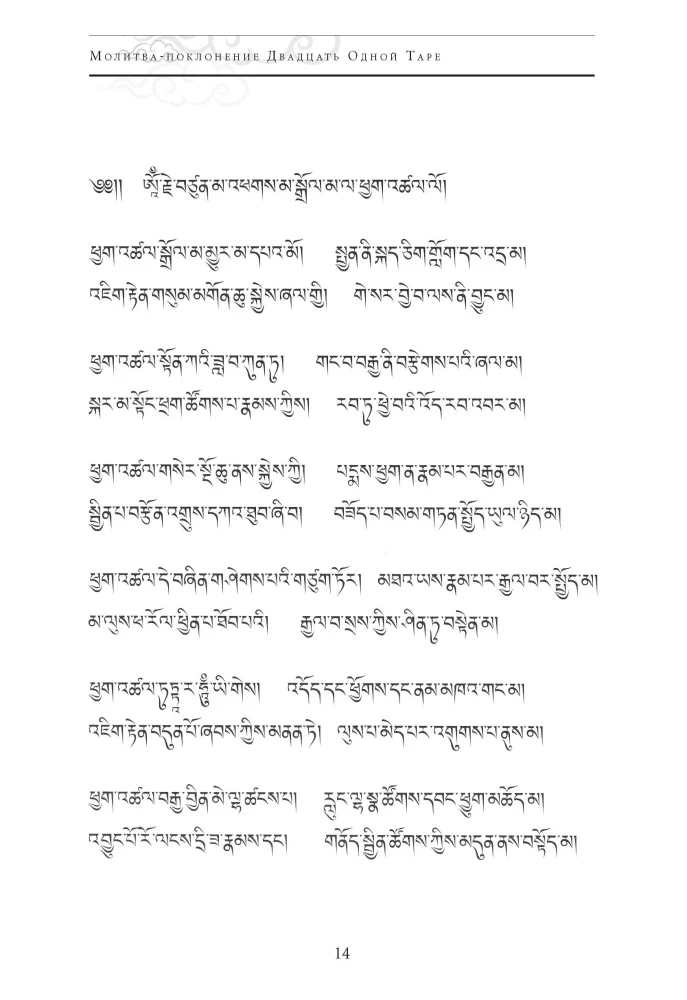 Молитва-поклонение Двадцать Одной Таре
༄༅།།   ཨོཾ་རྗེ་བཙུན་མ་འཕགས་མ་སྒྲོལ་མ་ལ་ཕྱག་འཚལ་ལོ།
ཕྱག་འཚལ་སྒྲོལ་མ་མྱུར་མ་དཔའ་མོ།   སྤྱན་ནི་སྐད་ཅིག་གློག་དང་འདྲ་མ།
འཇིག་རྟེན་གསུམ་མགོན་ཆུ་སྐྱེས་ཞལ་གྱི།   གེ་སར་བྱེ་བ་ལས་ནི་བྱུང་མ།
ཕྱག་འཚལ་སྟོན་ཀའི་ཟླ་བ་ཀུན་ཏུ།   གང་བ་བརྒྱ་ནི་བརྩེགས་པའི་ཞལ་མ།
སྐར་མ་སྟོང་ཕྲག་ཚོགས་པ་རྣམས་ཀྱིས།   རབ་ཏུ་ཕྱེ་བའི་འོད་རབ་འབར་མ།
ཕྱག་འཚལ་གསེར་སྔོ་ཆུ་ནས་སྐྱེས་ཀྱི།   པདྨས་ཕྱག་ན་རྣམ་པར་བརྒྱན་མ།
སྦྱིན་པ་བརྩོན་འགྲུས་དཀའ་ཐུབ་ཞི་བ།   བཟོད་པ་བསམ་གཏན་སྤྱོད་ཡུལ་ཉིད་མ།
ཕྱག་འཚལ་དེ་བཞིན་གཤེགས་པའི་གཙུག་ཏོར།   མཐའ་ཡས་རྣམ་པར་རྒྱལ་བར་སྤྱོད་མ།
མ་ལུས་ཕ་རོལ་ཕྱིན་པ་ཐོབ་པའི།   རྒྱལ་བ་སྲས་ཀྱིས་ཤིན་ཏུ་བསྟེན་མ།
ཕྱག་འཚལ་ཏུཏྟཱ་ར་ཧཱུྃ་ཡི་གེས།   འདོད་དང་ཕྱོགས་དང་ནམ་མཁའ་གང་མ།
འཇིག་རྟེན་བདུན་པོ་ཞབས་ཀྱིས་མནན་ཏེ།   ལུས་པ་མེད་པར་འགུགས་པ་ནུས་མ།
ཕྱག་འཚལ་བརྒྱ་བྱིན་མེ་ལྷ་ཚངས་པ།   རླུང་ལྷ་སྣ་ཚོགས་དབང་ཕྱུག་མཆོད་མ།
འབྱུང་པོ་རོ་ལངས་དྲི་ཟ་རྣམས་དང།   གནོད་སྦྱིན་ཚོགས་ཀྱིས་མདུན་ནས་བསྟོད་མ།
14